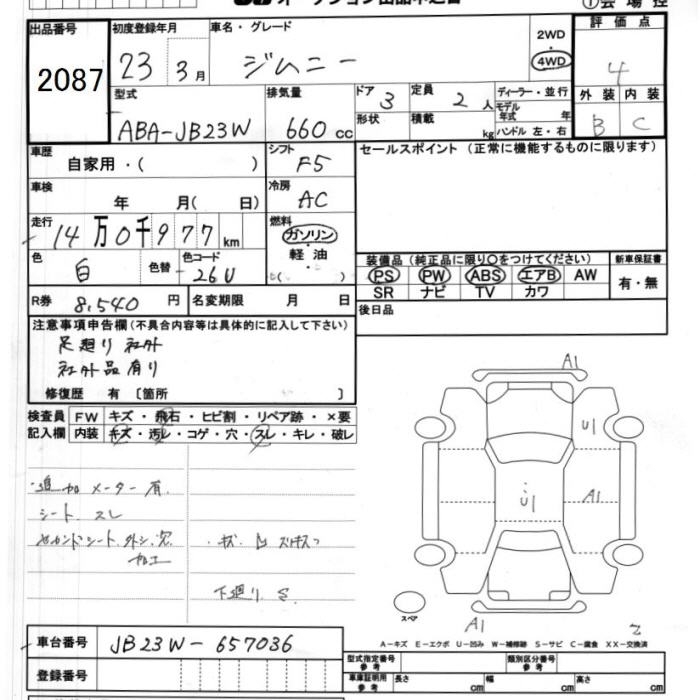 出品番号
2087
初度登録年月
23 3月
車名・グレード
ジムニー
2WD
4WD
評価点
4
外装 内装
B C
型式
ABA-JB23W
排気量
660 cc
ドア 3
形状
定員 2 人
積載 kg
ディーラー・並行
モデル年式 年
ハンドル 左・右
車歴
自家用・( )
シフト
F5
セールスポイント (正常に機能するものに限ります)
車検
年 月( 日)
冷房
AC
走行
14万0千977km
燃料
ガソリン
軽油
( )
色
白
色替
色コード
26U
装備品 (純正品に限り○をつけてください)
新車保証書
PS PW ABS エアB AW
有・無
SR ナビ TV カワ
R券 8,540 円
名変期限 月 日
後日品
注意事項申告欄(不具合内容等は具体的に記入して下さい)
足廻り社外
社外品有り
修復歴 有 〔箇所 〕
検査員
記入欄
FW キズ・飛石・ヒビ割・リペア跡・×要
内装 キズ・汚レ・コゲ・穴・スレ・キレ・破レ
追加メーター有
シート スレ
セカンドシート外シ、穴
加工
下廻りS
A1
U1
U1
A1
スペア
A1
2
A-キズ E-エクボ U-凹み W-補修跡 S-サビ C-腐食 XX-交換済
車台番号
JB23W-657036
登録番号
型式指定番号
参考
類別区分番号
参考
車庫証明用
参考
長さ cm
幅 cm
高さ cm